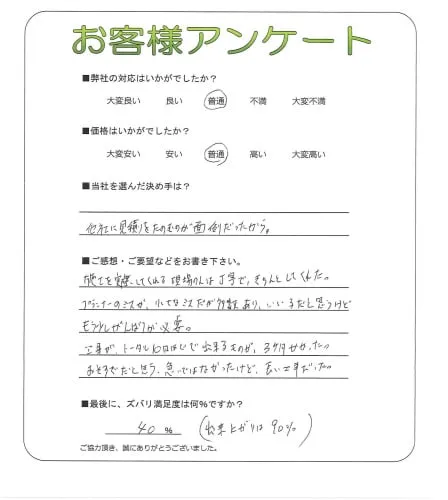 お客様アンケート
■弊社の対応はいかがでしたか？
大変良い 良い 普通 不満 大変不満
■価格はいかがでしたか？
大変安い 安い 普通 高い 大変高い
■当社を選んだ決め手は？
他社に見積りをたのむのが面倒だったから。
■ご感想・ご要望などをお書き下さい。
施工を実際してくれる現場の人は丁寧で、きちんとしてくれた。
プランナーのミスが、小さなミスだが多数あり、いい人だと思うけど
もう少しがんばりが必要。
工事が、トータル10日ほどで出来るものが、3ヶ月かかった。
おとそうだと思う、急いではなかったけど、長い工事だった。
■最後に、ズバリ満足度は何%ですか？
40 % (出来上がりは90%)
ご協力頂き、誠にありがとうございました。